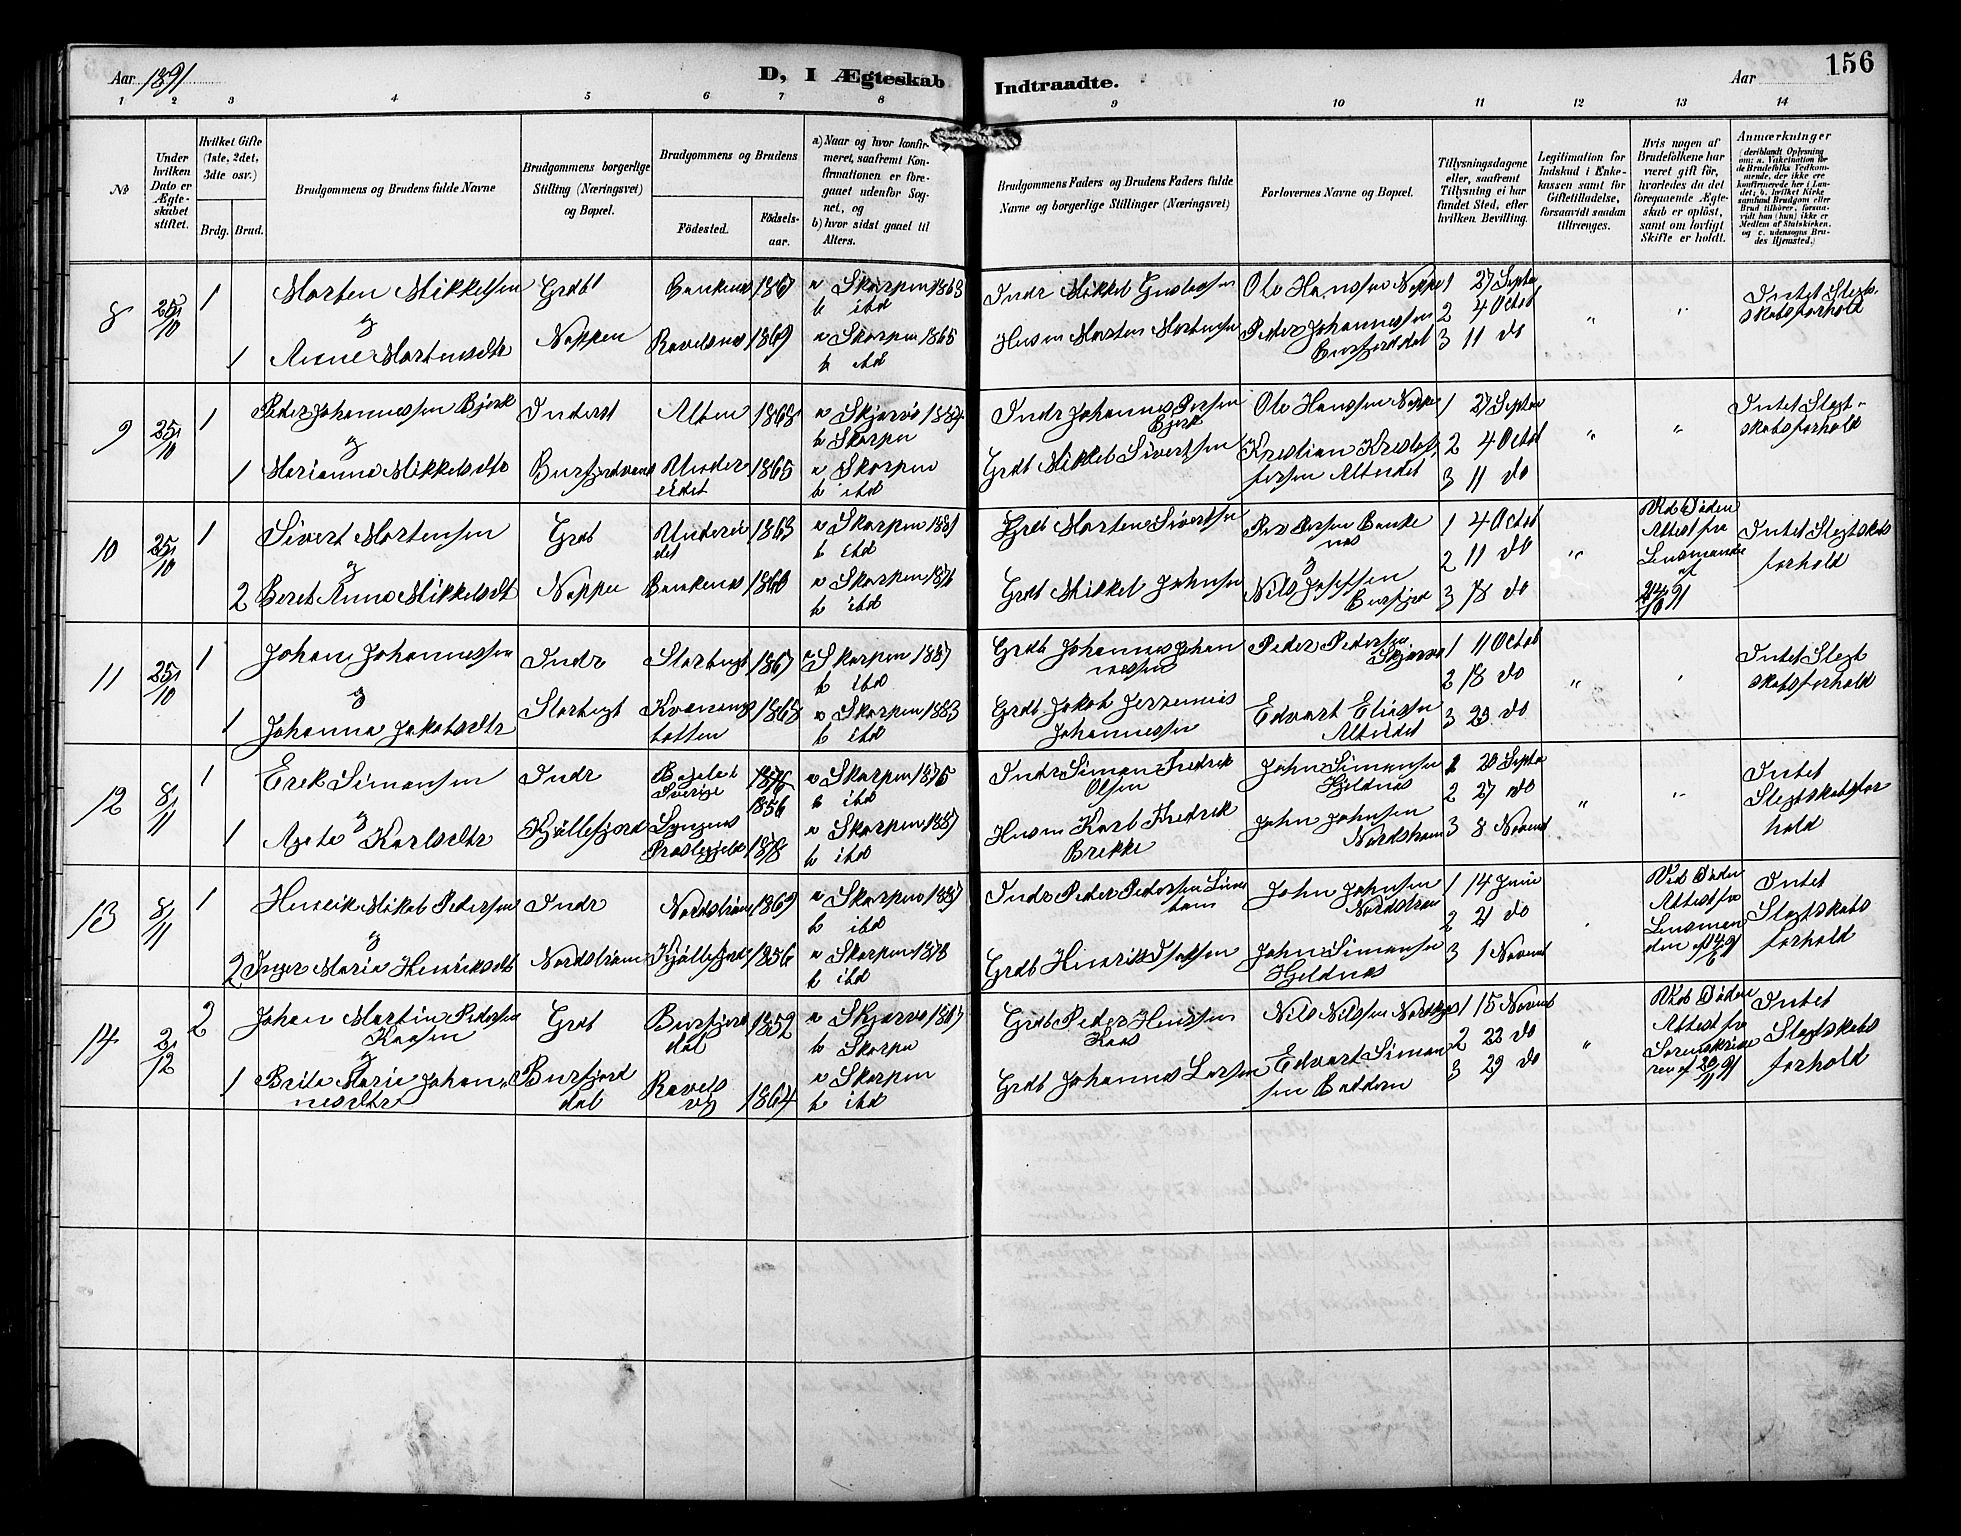 Aar 1891
D, I Ægteskab Indtraadte.
Aar
156
1 2 3 4 5 6 7 8 9 10 11 12 13 14
№
Under hvilken Dato er Ægteskabet stiftet.
Hvilket Gifte (1ste, 2det, 3die osv.)
Brdg. Brud.
Brudgommens og Brudens fulde Navne
Brudgommens borgerlige Stilling (Næringsvei) og Bopæl.
Brudgommens og Brudens
Fødested.
Fødselsaar.
a) Naar og hvor konfirmeret, saafremt Konfirmationen er foregaaet udenfor Sognet, og
b) hvor sidst gaaet til Alters.
Brudgommens Faders og Brudens Faders fulde Navne og borgerlige Stillinger (Næringsvei)
Forlovernes Navne og Bopæl.
Tillysningsdagene eller, saafremt Tillysning ei har fundet Sted, efter hvilken Bevilling.
Legitimation for Indskud i Enkekassen samt for Giftetilladelse, forsaavidt saadan tiltrænges.
Hvis nogen af Brudefolkene har været gift før, hvorledes da det foregaaende Ægteskab er opløst, samt om lovligt Skifte er holdt.
Anmærkninger (deriblandt Oplysning om: a. Vakcination for de Brudefolks Vedkommende, der ikke ere konfirmerede her i Landet, b. hvilket Kirkesamfund Brudgom eller Brud tilhører, forsaavidt han (hun) ikke er Medlem af Statskirken, og c. udensogns Brudes Hjemsted.)
8 25/10 1 Morten Mikkelsen Grdb 1867 a Skorpen 1883 Indr Mikkel Ole Hansen 1 27 Septb Intet Slegt-
& b ibd skabsforhold
1 Anne Mortensdtr 1869 a Skorpen 1865 Husm Morten Mortensen Peder Johannessen 2 4 Octob " "
b ibd Burfjorddal 3 11 do
9 25/10 1 Peder Johannessen Bjerk Inderst Alten 1868 a Skjervø 1884 Indr Johannes Persen Bjerk Ole Hanssen 1 27 Septb Intet Slegt-
& b Skorpen skabsforhold
1 Marianna Mikkelsdtr Under eidet 1865 a Skorpen Grdb Mikkel Sivertsen Kristian Kristof- 2 4 Octob " "
b ibd fersen Alteidet 3 11 do
10 25/10 1 Sivert Mortensen Grdb Underei det 1863 a Skorpen 1881 Grdb Morten Sivertsen Per Persen 1 4 Octob Ved Døden
& b ibd & 2 11 do " Attest fra Intet Slegtskabs
2 Beret Anna Mikkelsdt 1860 a Skorpen 1876 Grdb Mikkel Johnsen Nils Josefsen Burfjord 3 18 do Lensmanden forhold
b ibd af
11 25/10 1 Johan Johannessen Indr Storbugt 1867 a Skorpen 1887 Grdb Johannes Johannessen Peder Pedersen Skjervø 1 11 Octob Intet Slegt
& b ibd 2 18 do " skabsforhold
1 Johanna Jakobsdtr Storbugt Kvænangs botten 1868 a Skorpen 1883 Grdb Jakob Jeremias Johannessen Edvart Eliassen Alteidet 3 25 do
b ibd
12 8/11 1 Erik Simonsen Indr Sverige 1876 1856 a Skorpen 1875 Indr Simon Fredrik Olsen John Simonsen Hjeldnes 1 20 Septb Intet
& b ibd 2 27 do " Slegtskabsfor
1 Agete Karlsdtr Kjøllefjord Lyngens Præstegjeld 1878 a Skorpen 1887 Husm Karl Fredrik Brekke John Johnsen Nordstrøm 3 8 Novemb hold
b ibd
13 8/11 1 Henrik Mikal Pedersen Indr Nordstrøm 1869 a Skorpen 1887 Indr Peder Pedersen John Johnsen Nordstrøm 1 14 Juni Ved Døden Intet
& b ibd 2 21 do Attest fra Slegtskabs
2 Inger Maria Henriksdt Nordstrøm Kjøllefjord 1856 a Skorpen 1878 Grdb Henrik Isaksen John Simonsen Hjeldnes 3 1 Novemb Lensman forhold
b ibd den af
14 2/12 2 Johan Martin Pedersen Kaasen Grdb Burfjord dal 1852 a Skjervø 1867 Grdb Peder Hanssen Kaas Nils Nilssen 1 15 Novemb Ved Døden Intet
& b Skorpen 2 22 do " Attest fra Slegtskabs
1 Brita Marie Johan- Burfjord Ravels 1864 a Skorpen Grdb Johannes Larsen Edvart Simon 3 29 do Sorenskrive forhold
nesdtr dal vig b ibd sen Baddern ren af 20/11 91